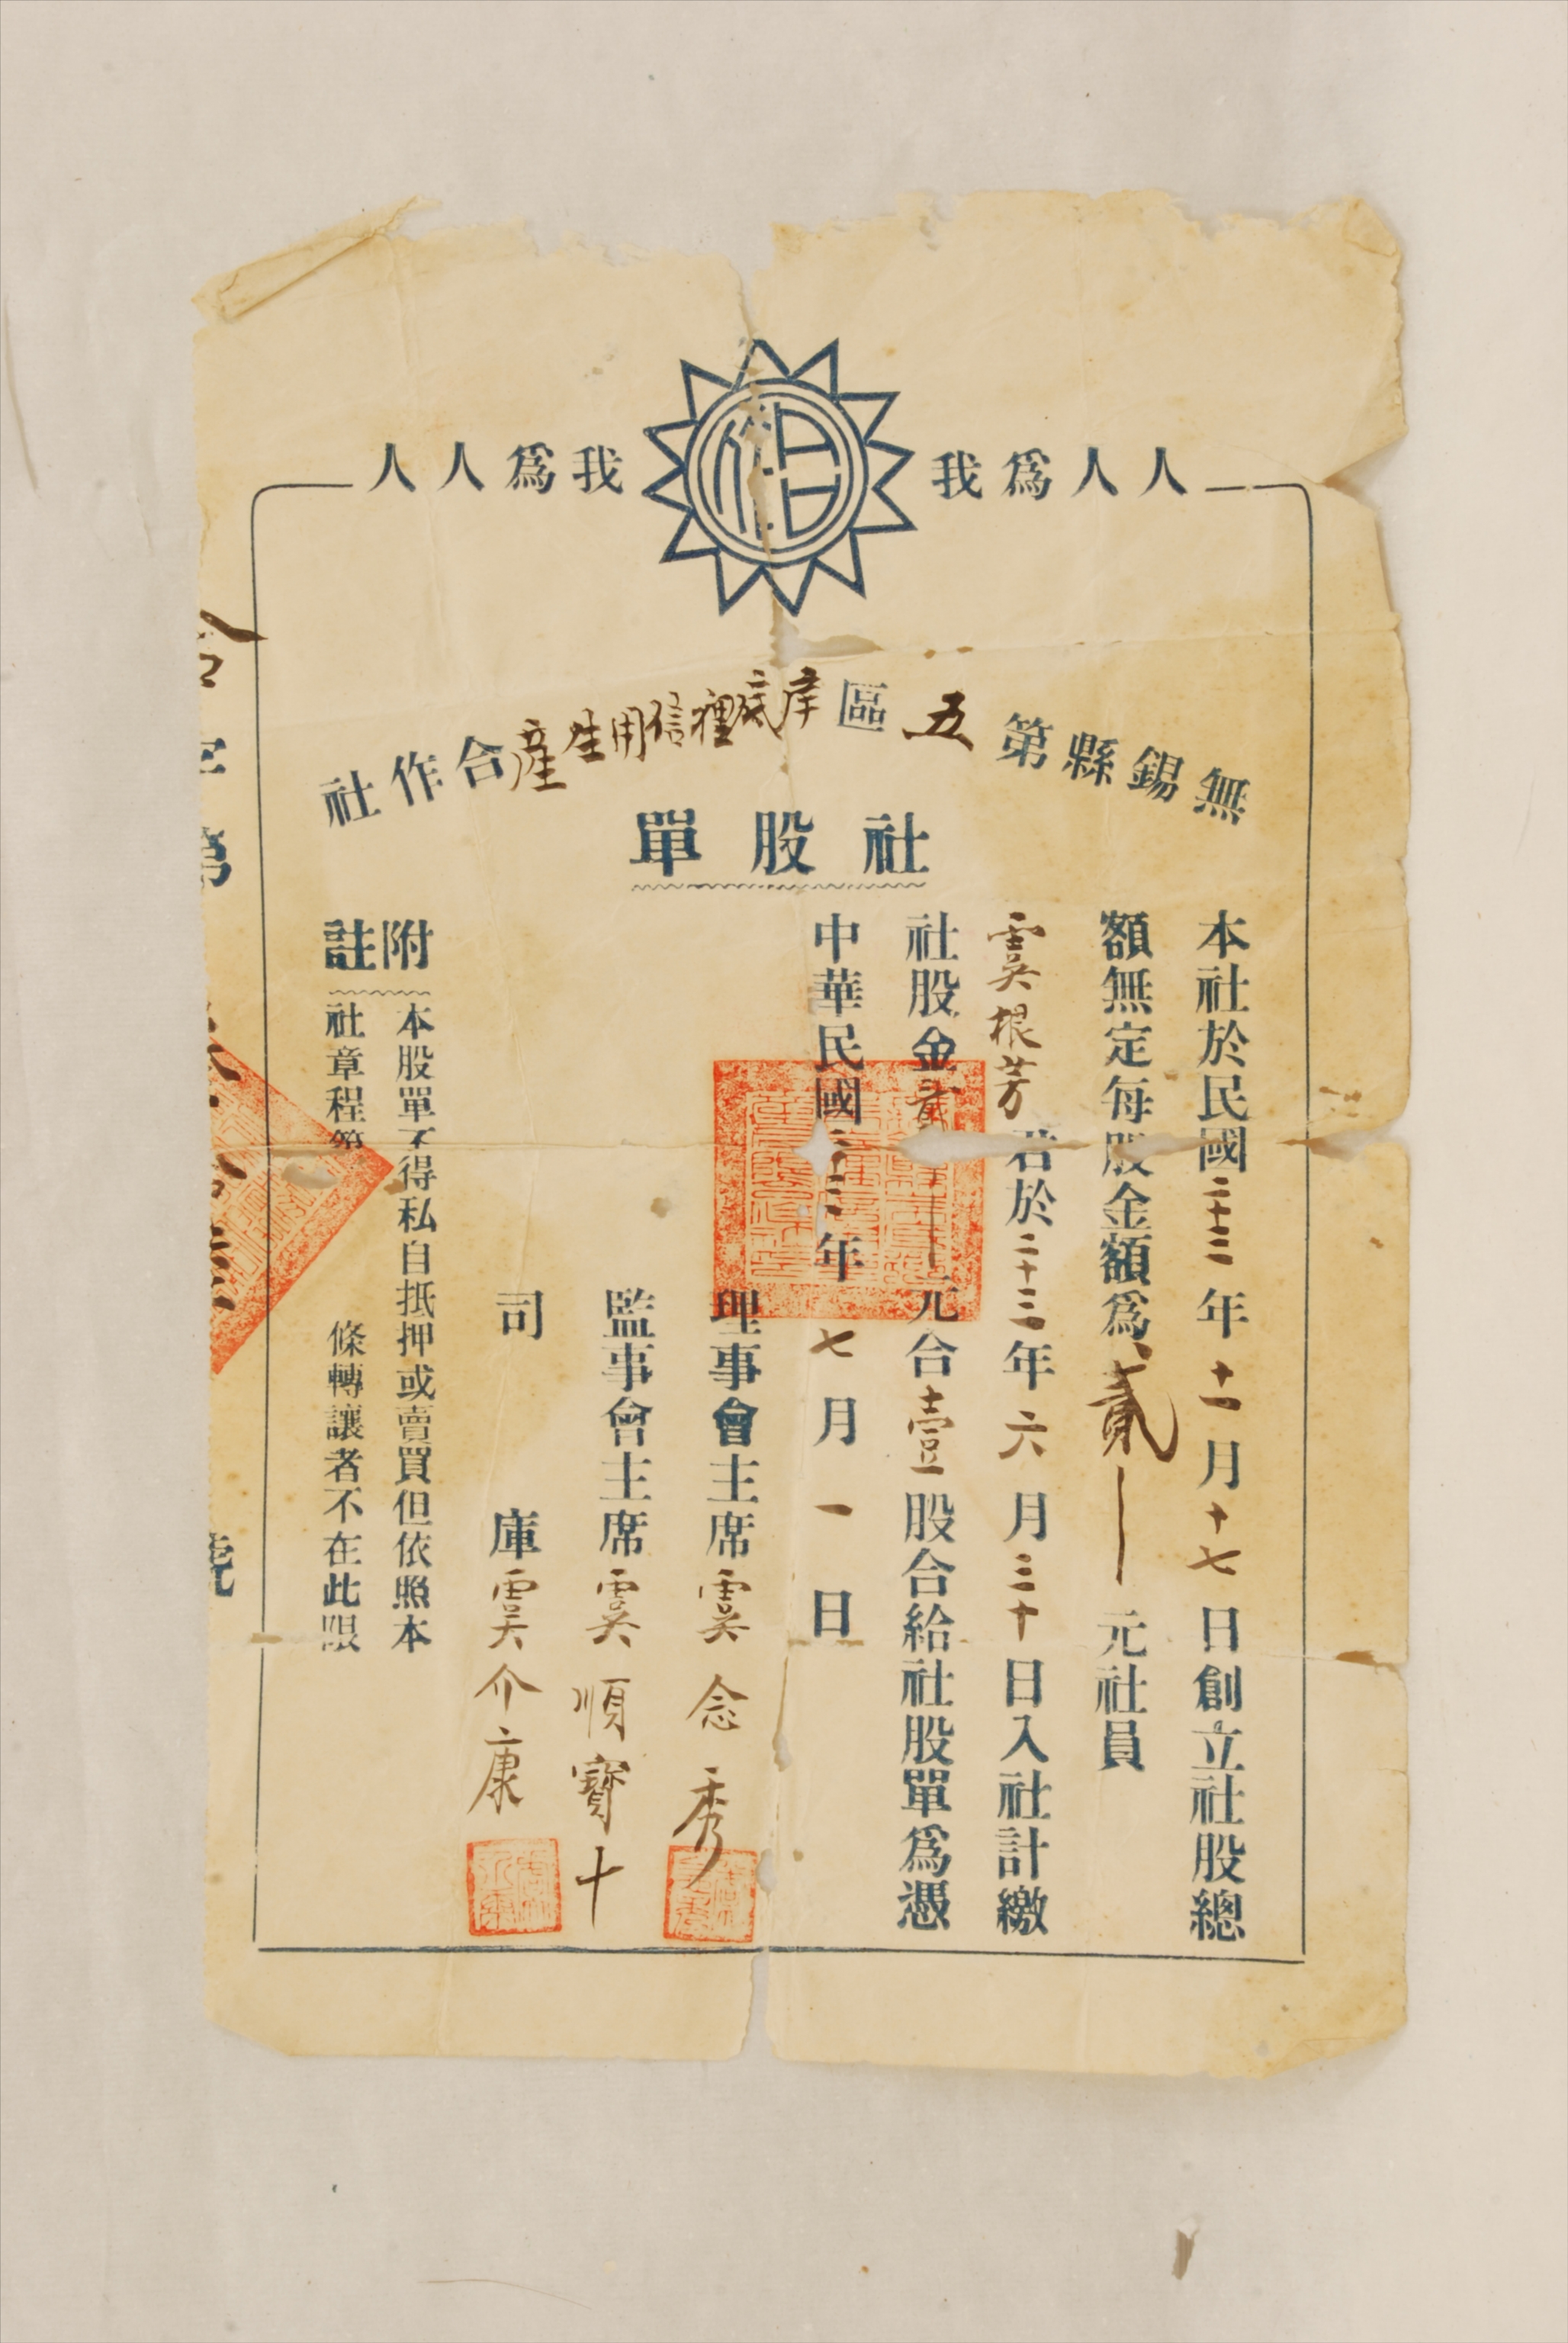 人人爲我 我爲人人
合
無錫縣第五區岸底裡信用生產合作社
社股單
本社於民國二十二年十一月十七日創立社股總
額無定每股金額爲貳元社員
虞根芳君於二十三年六月三十日入社計繳
社股金貳元合壹股合給社股單爲憑
中華民國二十三年七月一日
理事會主席虞念秀
監事會主席虞順寶十
司庫虞介康
附註
本股單不得私自抵押或賣買但依照本
社章程第 條轉讓者不在此限
字第 號